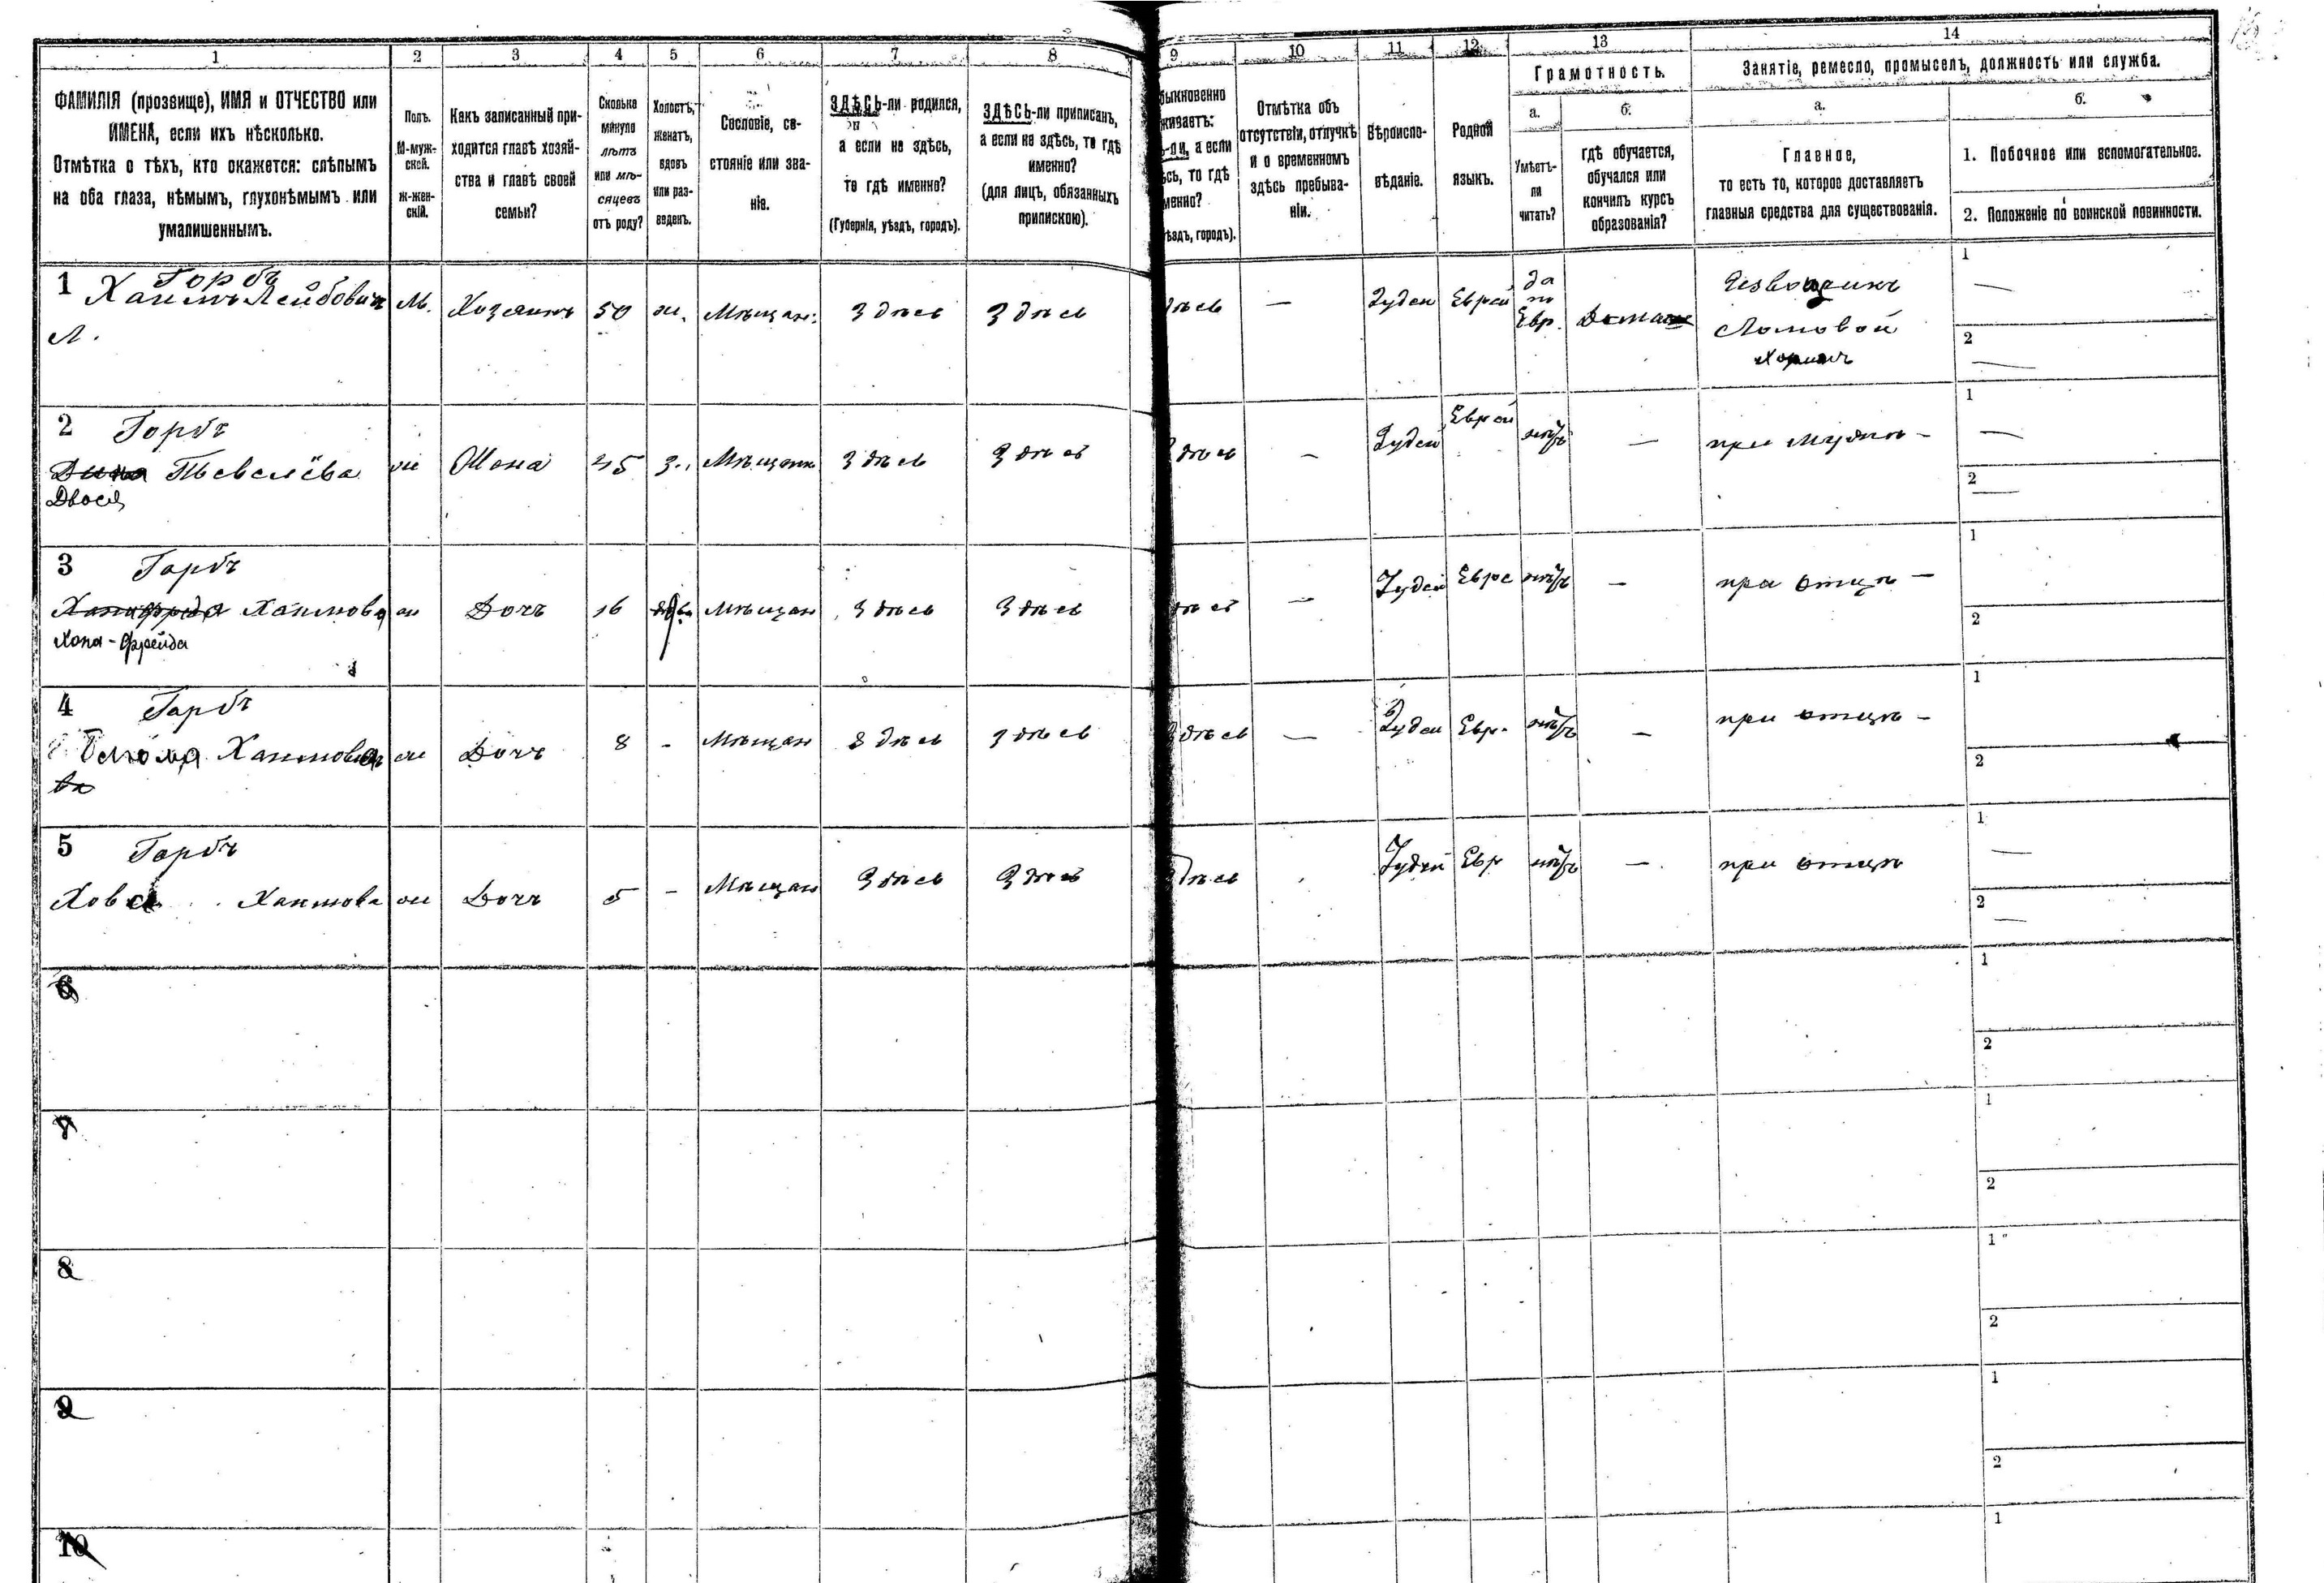 1 2 3 4 5 6 7 8 9 10 11 12 13 14
ФАМИЛІЯ (прозвище), ИМЯ и ОТЧЕСТВО или
ИМЕНА, если ихъ нѣсколько.
Отмѣтка о тѣхъ, кто окажется: слѣпымъ
на оба глаза, нѣмымъ, глухонѣмымъ или
умалишеннымъ.
Полъ.
М-муж-
ской.
Ж-жен-
скій.
Какъ записанный при-
ходится главѣ хозяй-
ства и главѣ своей
семьи?
Сколько
минуло
лѣтъ
или мѣ-
сяцевъ
отъ роду?
Холостъ,
женатъ,
вдовъ
или раз-
веденъ.
Сословіе, со-
стояніе или зва-
ніе.
ЗДѢСЬ-ли родился,
а если не здѣсь,
то гдѣ именно?
(Губернія, уѣздъ, городъ).
ЗДѢСЬ-ли приписанъ,
а если не здѣсь, то гдѣ
именно?
(для лицъ, обязанныхъ
припискою).
быкновенно
живаетъ:
-ли, а если
сь, то гдѣ
менно?
ѣздъ, городъ).
Отмѣтка объ
отсутствіи, отлучкѣ
и о временномъ
здѣсь пребыва-
ніи.
Вѣроиспо-
вѣданіе.
Родной
языкъ.
Грамотность.
а.
Умѣетъ-
ли
читать?
б.
гдѣ обучается,
обучался или
кончилъ курсъ
образованія?
Занятіе, ремесло, промыселъ, должность или служба.
а.
Главное,
то есть то, которое доставляетъ
главныя средства для существованія.
б.
1. Побочное или вспомогательное.
2. Положеніе по воинской повинности.
1 Горбъ
Хаимъ Лейбовичъ М. Хозяинъ 50 ж. Мѣщан. Здѣсь Здѣсь дѣсь — Іудей Еврей да по Евр. Дома Извощикъ
Ломовой
1 —
2 —
2 Горбъ
Дина Тевелёва ж Жона 45 з. Мѣщанк Здѣсь Здѣсь Здѣсь — Іудей Еврей нѣтъ — при мужѣ —
Двося
1 —
2 —
3 Горбъ
Хаимова ж Дочь 16 Мѣщан Здѣсь Здѣсь дѣсь — Іудей Евре нѣтъ — при отцѣ —
Хона-Фрейда
1
2
4 Горбъ
Хаимова ж Дочь 8 - Мѣщан Здѣсь Здѣсь Здѣсь — Іудей Евр. нѣтъ — при отцѣ —
1
2
5 Горбъ
Хаимова ж Дочь 5 - Мѣщан Здѣсь Здѣсь Здѣсь Іудей Евр нѣтъ — при отцѣ
1 —
2 —
6
1
2
7
1
2
8
1
2
9
1
2
10
1